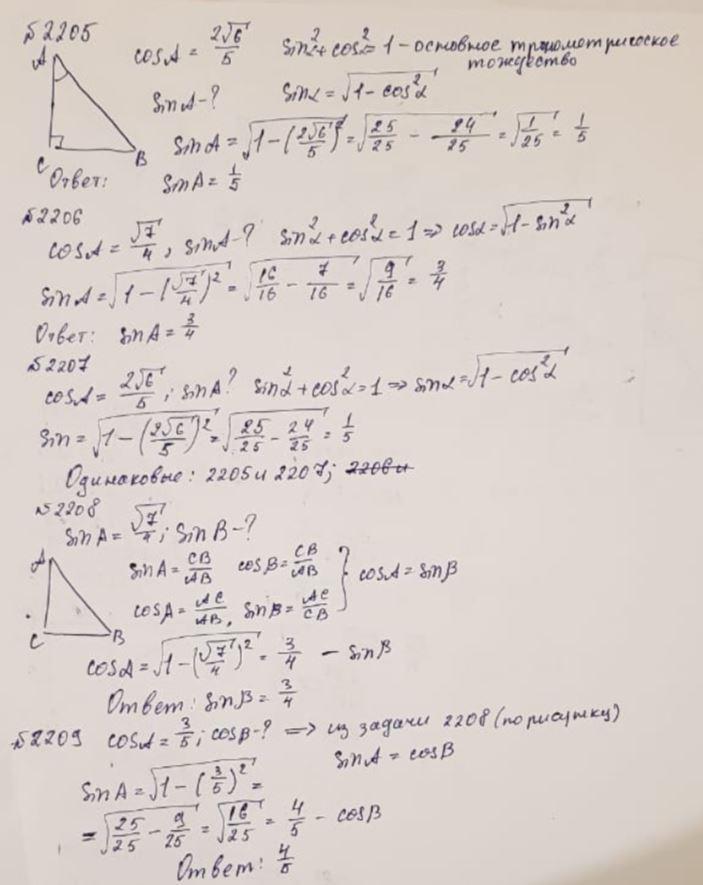 №2205
A
C
B
cosA = 2√6/5 sin²α + cos²α = 1 - основное тригонометрическое тождество
sinA - ? sinα = √(1 - cos²α)
sinA = √(1 - (2√6/5)²) = √(25/25 - 24/25) = √(1/25) = 1/5
Ответ: sinA = 1/5
№2206
cosA = √7/4, sinA - ? sin²α + cos²α = 1 ⇒ cosα = √(1 - sin²α)
sinA = √(1 - (√7/4)²) = √(16/16 - 7/16) = √(9/16) = 3/4
Ответ: sinA = 3/4
№2207
cosA = 2√6/5; sinA? sin²α + cos²α = 1 ⇒ sinα = √(1 - cos²α)
sin = √(1 - (2√6/5)²) = √(25/25 - 24/25) = 1/5
Одинаковые: 2205 и 2207; 2206 и
№2208
sinA = √7/4; sinB - ?
A
C
B
sinA = CB/AB cosB = CB/AB } cosA = sinB
cosA = AC/AB, sinB = AC/CB
cosA = √(1 - (√7/4)²) = 3/4 - sinB
Ответ: sinB = 3/4
№2209 cosA = 3/5; cosB - ? ⇒ из задачи 2208 (по рисунку)
sinA = cosB
sinA = √(1 - (3/5)²) =
= √(25/25 - 9/25) = √(16/25) = 4/5 - cosB
Ответ: 4/5